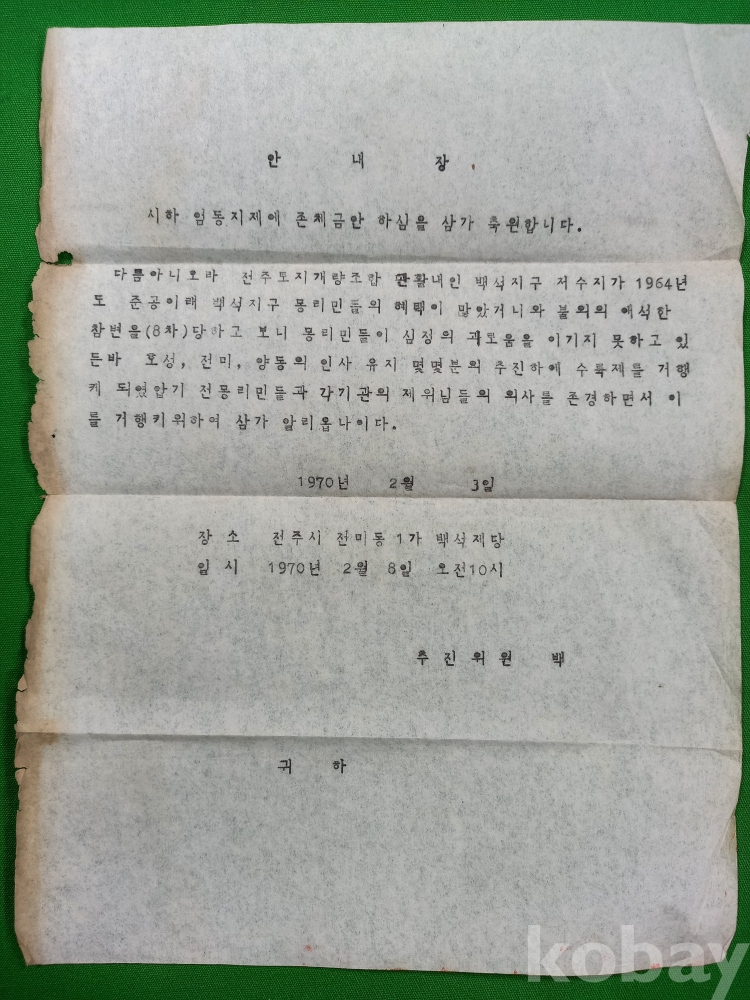 안 내 장
시하 엄동지제에 존체금안 하심을 삼가 축원합니다.
다름아니오라 전주토지개량조합 관활내인 백석지구 저수지가 1964년
도 준공이래 백석지구 몽리민들의 혜택이 많았거니와 불의의 애석한
참변을(8차)당하고 보니 몽리민들이 심정의 괴로움을 이기지 못하고 있
든바 호성, 전미, 양동의 인사 유지 몇몇분의 추진하에 수륙제를 거행
케 되였압기 전몽리민들과 각기관의 제위님들의 의사를 존경하면서 이
를 거행키위하여 삼가 알리옵나이다.
1970년 2월 3일
장 소 전주시 전미동 1가 백석제당
일 시 1970년 2월 8일 오전10시
추 진 위 원 백
귀 하
kobay